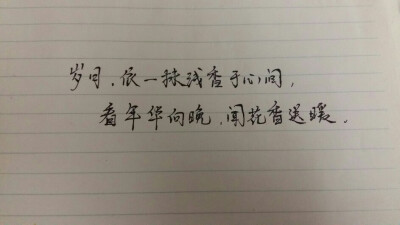 岁月，依一抹浅香于心间，
看年华向晚，闻花香送暖。